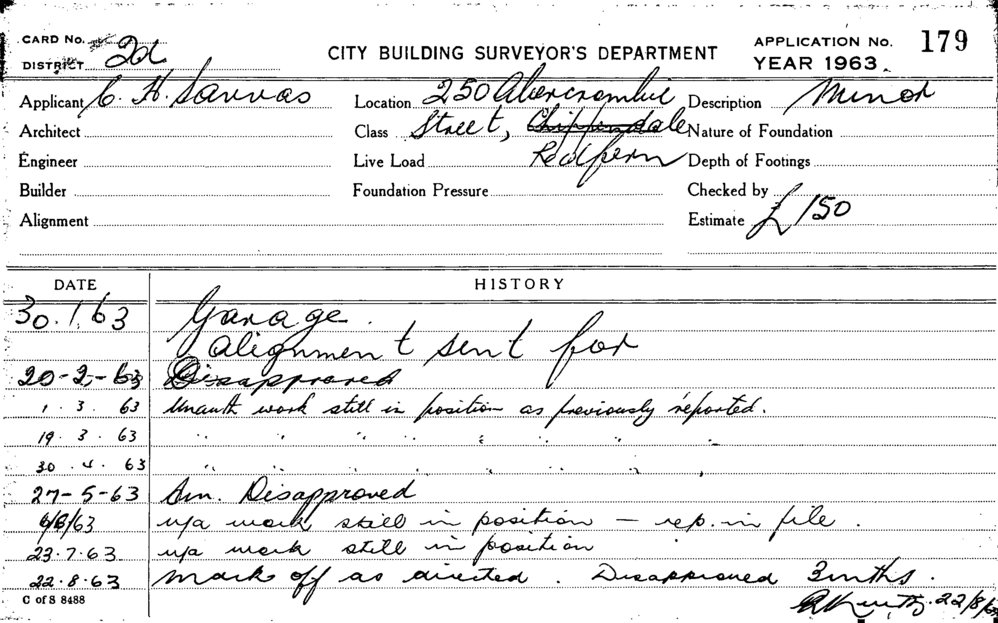 CARD No.
DISTRICT 2d
CITY BUILDING SURVEYOR'S DEPARTMENT
APPLICATION No. 179
YEAR 1963.
Applicant C. H. Savvas
Location 250 Abercrombie
Description Minor
Architect
Class Street, Chippendale
Nature of Foundation
Engineer
Live Load Redfern
Depth of Footings
Builder
Foundation Pressure
Checked by
Alignment
Estimate £150
DATE HISTORY
30.1.63 Garage.
Alignment sent for
20-2-63 Disapproved
1.3.63 Unauth work still in position as previously reported.
19.3.63 " " " " " " "
30.4.63 " " " " " " "
27-5-63 Am. Disapproved
6/6/63 u/a work still in position – rep. in file.
23.7.63 u/a work still in position
22.8.63 Mark off as directed. Disapproved 3mths.
C of S 8488
22/8/63